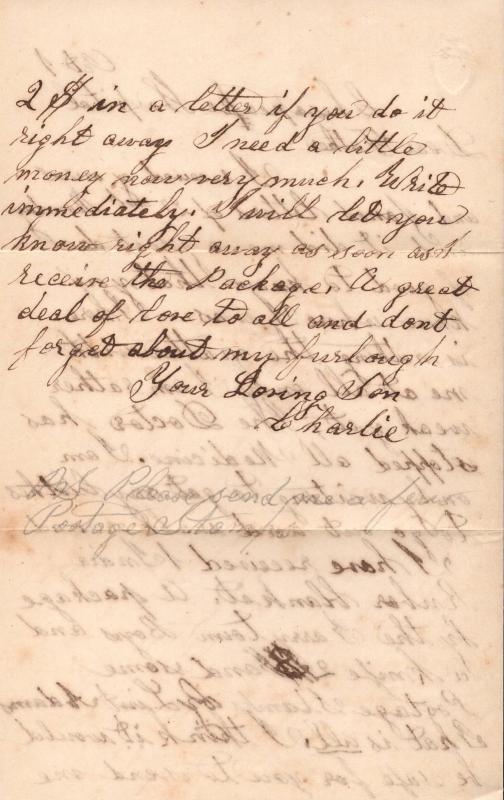 2 $ in a letter if you do it
right away I need a little
money now very much. Write
immediately. I will let you
know right away as soon as I
receive the Package. A great
deal of love to all and dont
forget about my furlough
Your Loving Son
Charlie
PS Please send me a few
Postage Stamps